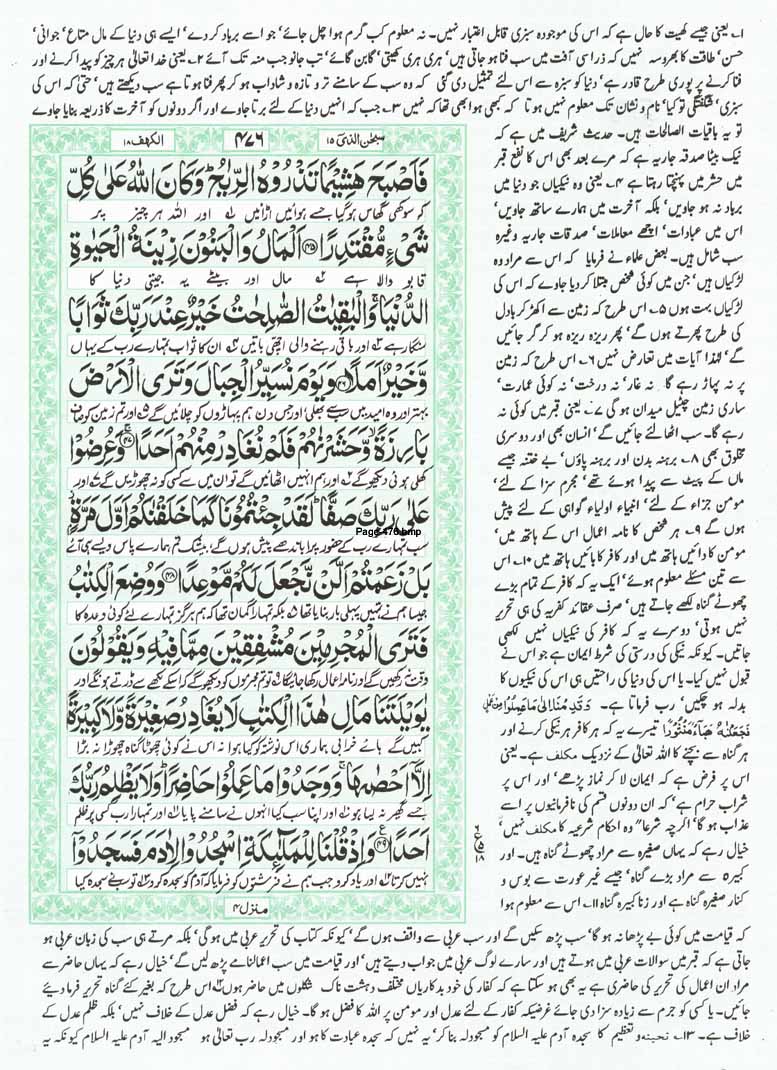 ۱۔ یعنی جیسے کھیت کا حال ہے کہ اس کی موجودہ سبزی قابل اعتبار نہیں۔ نہ معلوم کب گرم ہوا چل جائے‘ جو اسے برباد کر دے‘ ایسے ہی دنیا کے مال متاع‘ جوانی‘
حسن‘ طاقت کا بھروسہ نہیں کہ ذرا سی آفت میں سب فنا ہو جاتی ہیں‘ ہری ہری کھیتی‘ گابن گائے‘ تب جانو جب منہ تک آئے ۲۔ یعنی خدا تعالیٰ ہر چیز کو پیدا کرنے اور
فنا کرنے پر پوری طرح قادر ہے‘ دنیا کو سبزہ سے اس لئے تمثیل دی گئی کہ وہ سب کے سامنے تر و تازہ و شاداب ہو کر پھر فنا ہوتا ہے سب دیکھتے ہیں‘ حتیٰ کہ اس کی
سبزی‘ شگفتگی تو کیا‘ نام و نشان تک معلوم نہیں ہوتا کہ کبھی ہوا بھی تھا کہ نہیں ۳۔ جب کہ انہیں دنیا کے لئے برتا جاوے اور اگر دونوں کو آخرت کا ذریعہ بنایا جاوے
تو یہ باقیات الصالحات ہیں۔ حدیث شریف میں ہے کہ
نیک بیٹا صدقہ جاریہ ہے کہ مرے بعد بھی اس کا نفع قبر
میں حشر میں پہنچتا رہتا ہے ۴۔ یعنی وہ نیکیاں جو دنیا میں
برباد نہ ہو جاویں‘ بلکہ آخرت میں ہمارے ساتھ جاویں‘
اس میں عبادات‘ اچھے معاملات‘ صدقات جاریہ وغیرہ
سب شامل ہیں۔ بعض علماء نے فرمایا کہ اس سے مراد وہ
لڑکیاں ہیں‘ جن میں کوئی شخص مبتلا کر دیا جاوے کہ اس کی
لڑکیاں بہت ہوں ۵۔ اس طرح کہ زمین سے اکھڑ کر بادل
کی طرح پھرتے ہوں گے‘ پھر ریزہ ریزہ ہو کر گر جائیں
گے‘ لہٰذا آیات میں تعارض نہیں ۶۔ اس طرح کہ زمین
پر نہ پہاڑ رہے گا نہ غار‘ نہ درخت‘ نہ کوئی عمارت‘
ساری زمین چٹیل میدان ہو گی ۷۔ یعنی قبر میں کوئی نہ
رہے گا۔ سب اٹھا لئے جائیں گے‘ انسان بھی اور دوسری
مخلوق بھی ۸۔ برہنہ بدن اور برہنہ پاؤں‘ بے ختنہ جیسے
ماں کے پیٹ سے پیدا ہوئے تھے‘ مجرم سزا کے لئے‘
مومن جزاء کے لئے‘ انبیاء اولیاء گواہی کے لئے پیش
ہوں گے ۹۔ ہر شخص کا نامہ اعمال اس کے ہاتھ میں‘
مومن کا دائیں ہاتھ میں اور کافر کا بائیں ہاتھ میں ۱۰۔ اس
سے تین مسئلے معلوم ہوئے‘ ایک یہ کہ کافر کے تمام بڑے
چھوٹے گناہ لکھے جاتے ہیں‘ صرف عقائد کفریہ کی ہی تحریر
نہیں ہوتی‘ دوسرے یہ کہ کافر کی نیکیاں نہیں لکھی
جاتیں۔ کیونکہ نیکی کی درستی کی شرط ایمان ہے جو اس نے
قبول نہیں کیا۔ یا اس کی دنیا کی راحتیں ہی اس کی نیکیوں کا
بدلہ ہو چکیں‘ رب فرماتا ہے۔ وَقَدِمْنَا اِلٰی مَا عَمِلُوْا مِنْ عَمَلٍ
فَجَعَلْنٰهُ هَبَآءً مَّنْثُوْرًا تیسرے یہ کہ ہر کافر ہر نیکی کرنے اور
ہر گناہ سے بچنے کا اللہ تعالیٰ کے نزدیک مکلف ہے۔ یعنی
اس پر فرض ہے کہ ایمان لا کر نماز پڑھے‘ اور اس پر
شراب حرام ہے‘ کہ ان دونوں قسم کی نافرمانیوں پر اسے
عذاب ہو گا‘ اگرچہ شرعاً وہ احکام شرعیہ کا مکلف نہیں‘
خیال رہے کہ یہاں صغیرہ سے مراد چھوٹے گناہ ہیں۔ اور
کبیرہ سے مراد بڑے گناہ‘ جیسے غیر عورت سے بوس و
کنار صغیرہ گناہ ہے اور زنا کبیرہ گناہ ۱۱۔ اس سے معلوم ہوا
سبحٰن الذی ۱۵
۴۷۶
الکہف ۱۸
فَاَصْبَحَ هَشِیْمًا تَذْرُوْهُ الرِّیٰحُ ؕ وَكَانَ اللّٰهُ عَلٰی كُلِّ
کہ سوکھی گھاس ہو گیا جسے ہوائیں اڑائیں ۱ اور اللہ ہر چیز پر
شَیْءٍ مُّقْتَدِرًا ﴿۴۵﴾ اَلْمَالُ وَالْبَنُوْنَ زِیْنَةُ الْحَیٰوةِ
قابو والا ہے ۲ مال اور بیٹے یہ جیتی دنیا کا
الدُّنْیَا ۚ وَالْبٰقِیٰتُ الصّٰلِحٰتُ خَیْرٌ عِنْدَ رَبِّكَ ثَوَابًا
سنگار ہے ۳ اور باقی رہنے والی اچھی باتیں ۴ ان کا ثواب تمہارے رب کے یہاں
وَّخَیْرٌ اَمَلًا ﴿۴۶﴾ وَیَوْمَ نُسَیِّرُ الْجِبَالَ وَتَرَی الْاَرْضَ
بہتر اور وہ امید میں سب سے بھلی‘ اور جس دن ہم پہاڑوں کو چلائیں گے ۵ اور تم زمین کو صاف
بَارِزَةً ۙ وَّحَشَرْنٰهُمْ فَلَمْ نُغَادِرْ مِنْهُمْ اَحَدًا ﴿۴۷﴾ وَعُرِضُوْا
کھلی ہوئی دیکھو گے ۶ اور ہم انہیں اٹھائیں گے تو ان میں سے کسی کو نہ چھوڑیں گے ۷ اور
عَلٰی رَبِّكَ صَفًّا ؕ لَقَدْ جِئْتُمُوْنَا كَمَا خَلَقْنٰكُمْ اَوَّلَ مَرَّةٍۭ
Page 476.bmp
سب تمہارے رب کے حضور پرا باندھے پیش ہوں گے‘ بیشک تم ہمارے پاس ویسے ہی آئے
بَلْ زَعَمْتُمْ اَلَّنْ نَّجْعَلَ لَكُمْ مَّوْعِدًا ﴿۴۸﴾ وَوُضِعَ الْكِتٰبُ
جیسا ہم نے تمہیں پہلی بار بنایا تھا ۸ بلکہ تمہارا گمان تھا کہ ہم ہرگز تمہارے لئے کوئی وعدہ کا
فَتَرَی الْمُجْرِمِیْنَ مُشْفِقِیْنَ مِمَّا فِیْهِ وَیَقُوْلُوْنَ
وقت نہ رکھیں گے اور نامہ اعمال رکھا جائیگا ۹ تو تم مجرموں کو دیکھو گے کہ اسکے لکھے سے ڈرتے ہونگے اور
یٰوَیْلَتَنَا مَالِ هٰذَا الْكِتٰبِ لَا یُغَادِرُ صَغِیْرَةً وَّلَا كَبِیْرَةً
کہیں گے ہائے خرابی ہماری اس نوشتہ کو کیا ہوا نہ اس نے کوئی چھوٹا گناہ چھوڑا نہ بڑا
اِلَّاۤ اَحْصٰىهَا ۚ وَوَجَدُوْا مَا عَمِلُوْا حَاضِرًا ؕ وَلَا یَظْلِمُ رَبُّكَ
جسے گھیر نہ لیا ہو ۱۰ اور اپنا سب کیا انہوں نے سامنے پایا ۱۱ اور تمہارا رب کسی پر ظلم
اَحَدًا ﴿۴۹﴾ وَاِذْ قُلْنَا لِلْمَلٰٓئِكَةِ اسْجُدُوْا لِاٰدَمَ فَسَجَدُوْۤا
نہیں کرتا ۱۲ اور یاد کرو جب ہم نے فرشتوں کو فرمایا کہ آدم کو سجدہ کرو ۱۳ تو سب نے سجدہ کیا
منزل ۴
کہ قیامت میں کوئی بے پڑھا نہ ہو گا‘ سب پڑھ سکیں گے اور سب عربی سے واقف ہوں گے‘ کیونکہ کتاب کی تحریر عربی میں ہو گی‘ بلکہ مرتے ہی سب کی زبان عربی ہو
جاتی ہے کہ قبر میں سوالات عربی میں ہوتے ہیں اور سارے لوگ عربی میں جواب دیتے ہیں‘ اور قیامت میں سب اعمالنامے پڑھ لیں گے‘ خیال رہے کہ یہاں حاضر سے
مراد ان اعمال کی تحریر کی حاضری ہے یہ بھی ہو سکتا ہے کہ کفار کی خود بدکاریاں مختلف دہشت ناک شکلوں میں حاضر ہوں ۱۲۔ اس طرح کہ بغیر کئے گناہ تحریر فرما دیئے
جائیں۔ یا کسی کو جرم سے زیادہ سزا دی جائے غرضیکہ کفار کے لئے عدل اور مومن پر اللہ کا فضل ہو گا۔ خیال رہے کہ فضل عدل کے خلاف نہیں‘ بلکہ ظلم عدل کے
خلاف ہے۔ ۱۳۔ تحیتہ و تعظیم کا سجدہ آدم علیہ السلام کو مسجود لہ بنا کر‘ یہ نہیں کہ سجدہ عبادت کا ہو اور مسجود لہ رب تعالیٰ ہو مسجود الیہ آدم علیہ السلام کیونکہ یہ